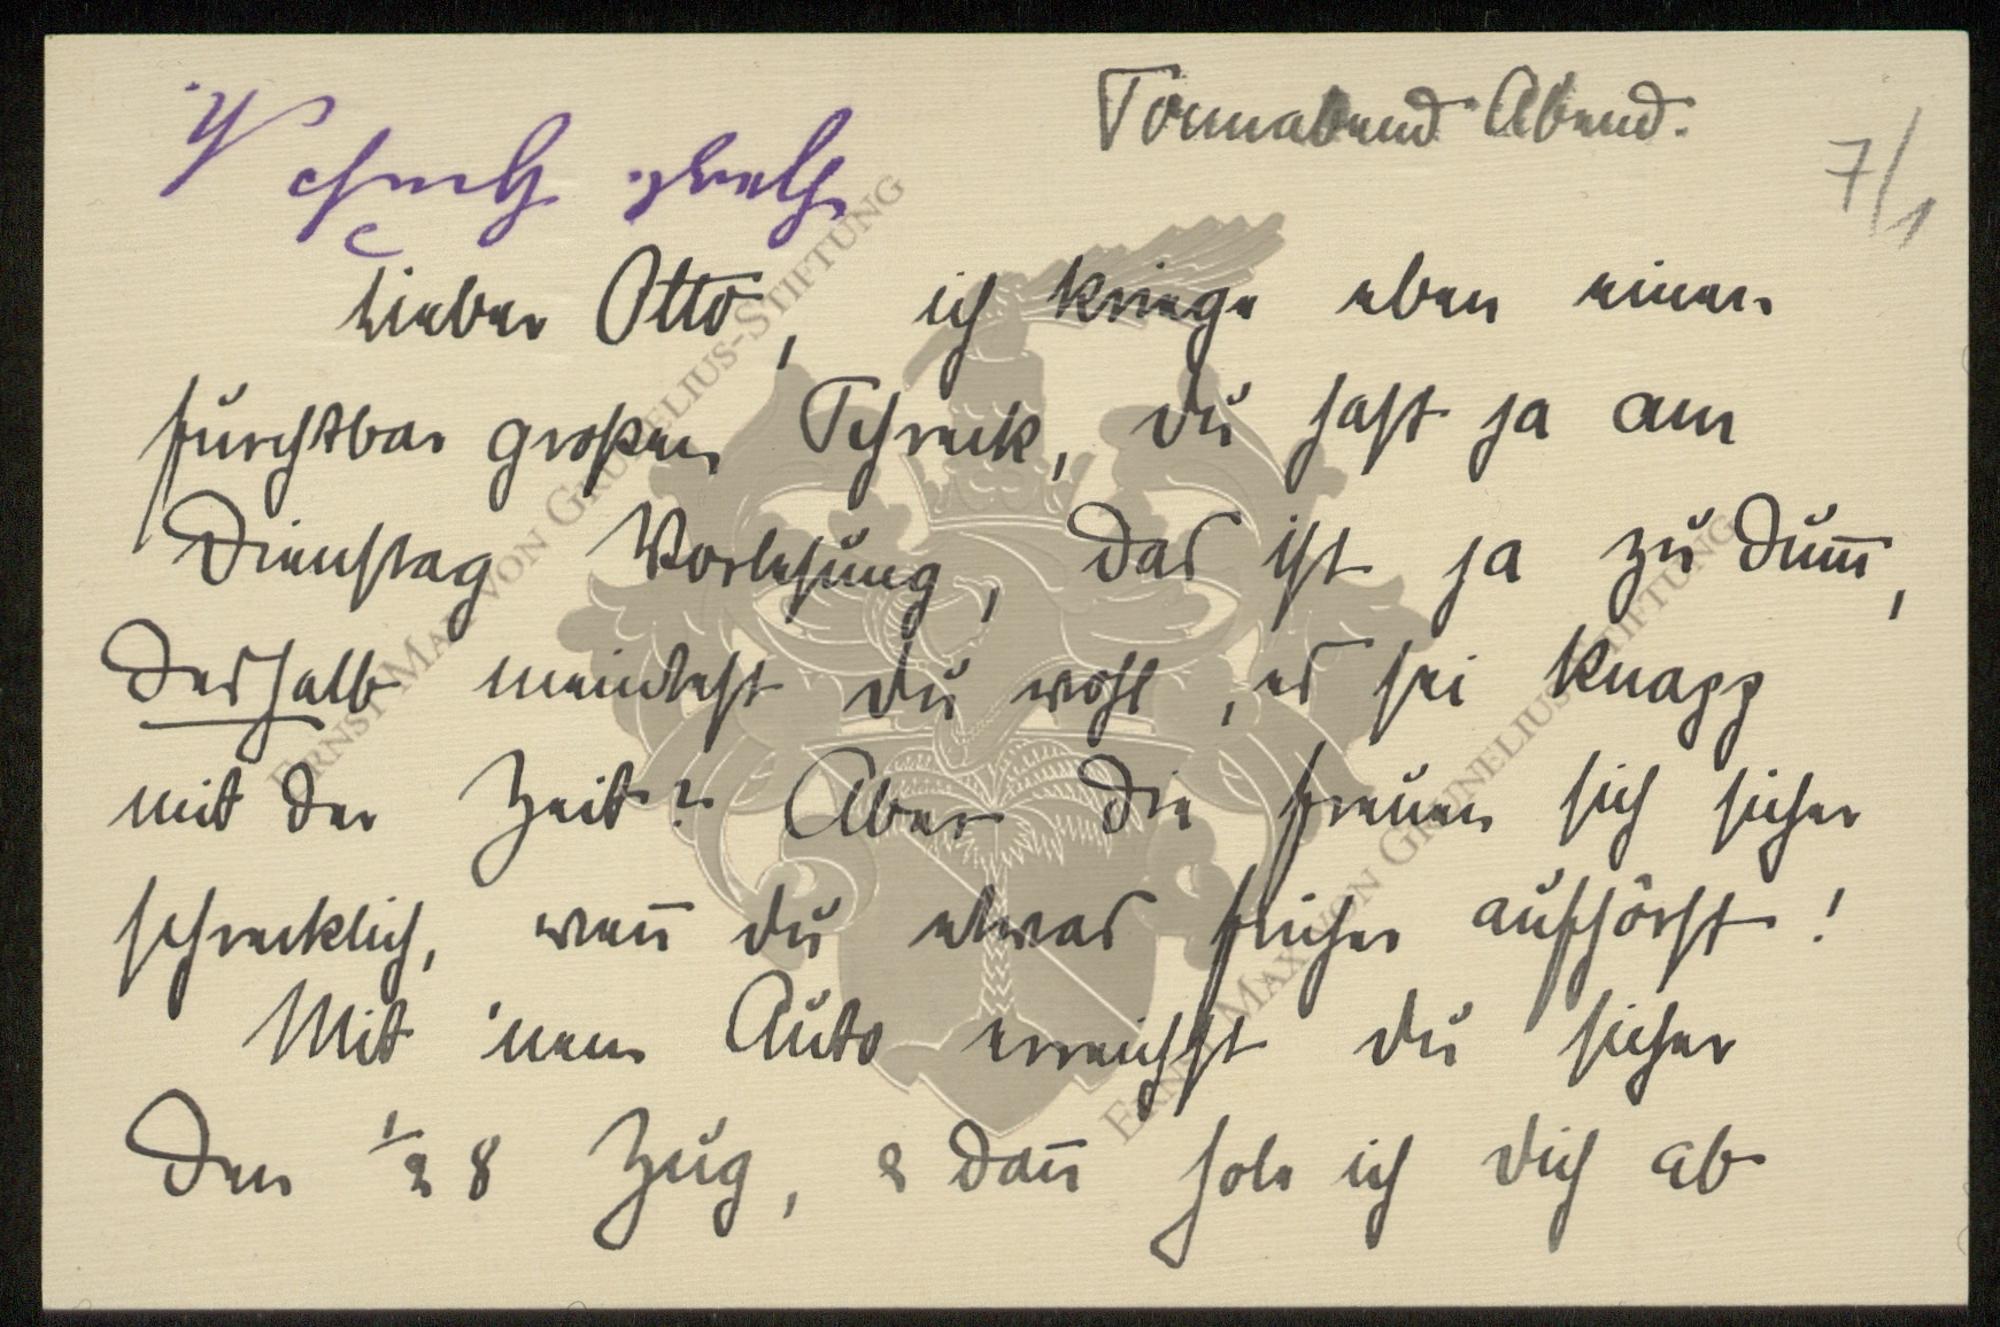 Sonnabend Abend.
7/1
Lieber Otto, ich kriege eben einen
furchtbar großen Schreck, du hast ja am
Dienstag Vorlesung, das ist ja zu dum̅,
deshalb meintest du wohl, es sei knapp
mit der Zeit? Aber die freuen sich sicher
schrecklich, wen̅ du etwas früher aufhörst!
Mit 'nem Auto erreichst du sicher
den ½ 8 Zug, & dan̅ hole ich dich ab
ERNST MAX VON GRUNELIUS-STIFTUNG
ERNST MAX VON GRUNELIUS-STIFTUNG